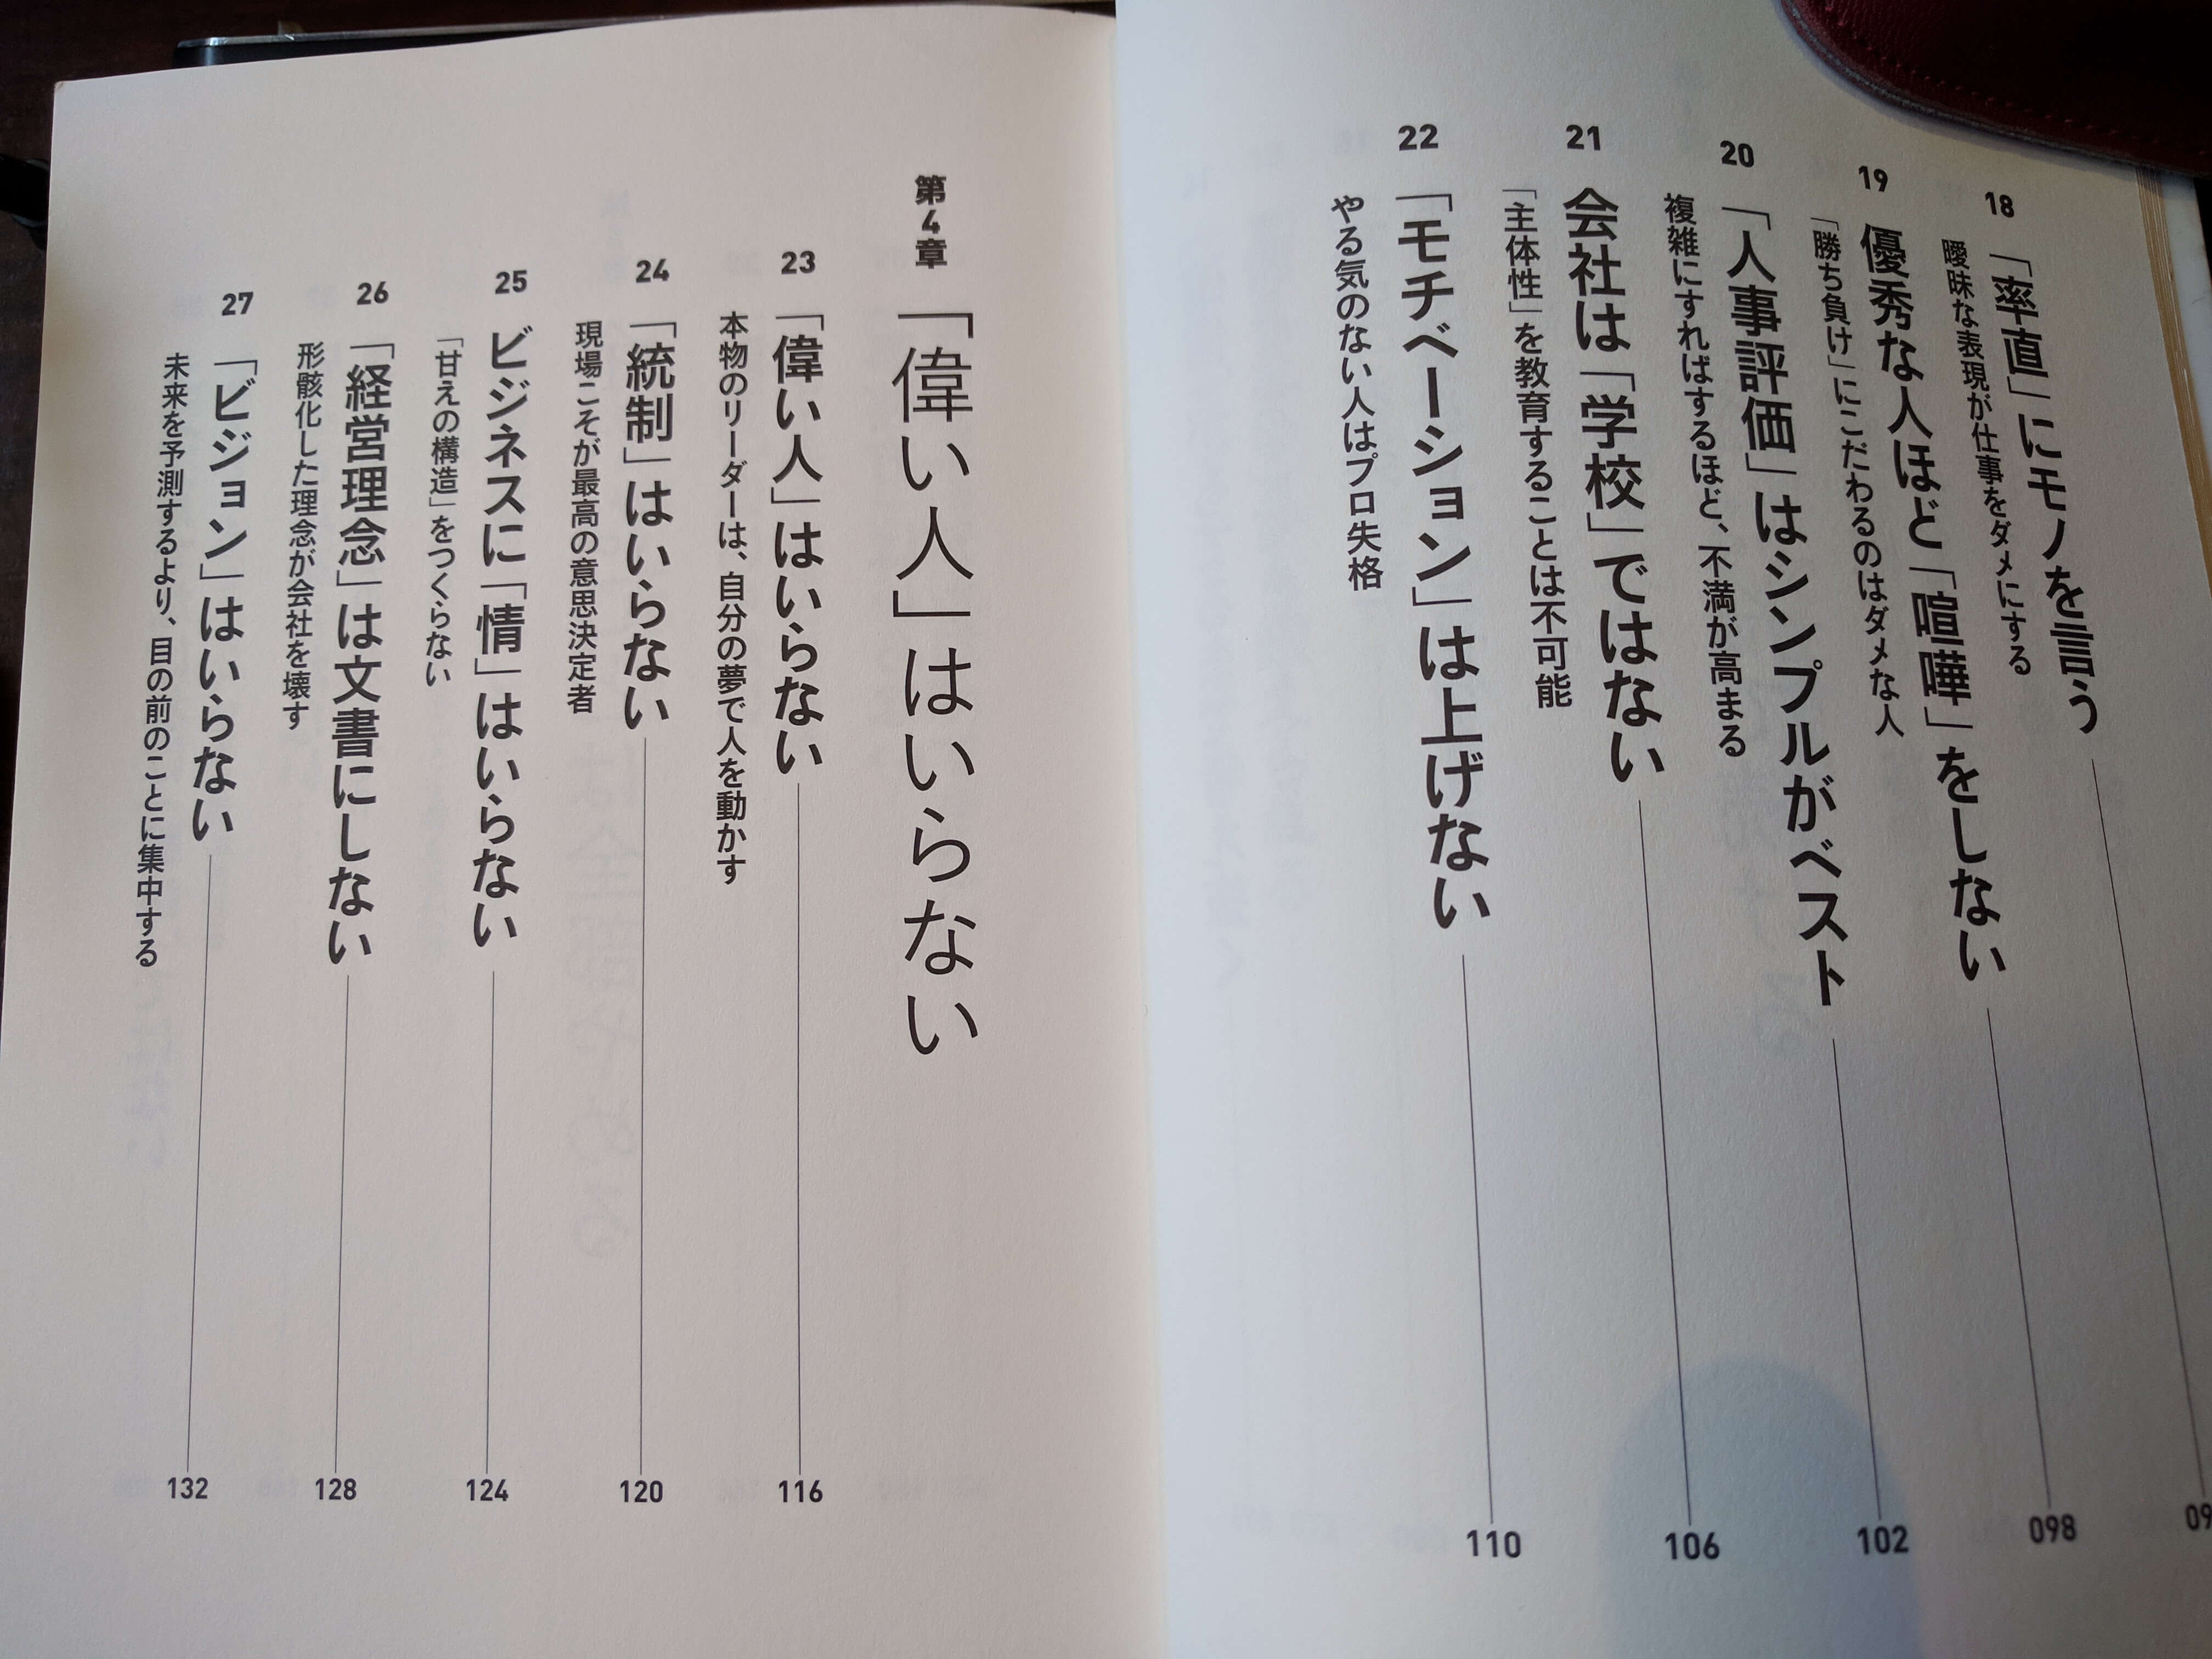 18 「率直」にモノを言う
曖昧な表現が仕事をダメにする
19 優秀な人ほど「喧嘩」をしない 098
「勝ち負け」にこだわるのはダメな人
20 「人事評価」はシンプルがベスト 102
複雑にすればするほど、不満が高まる
21 会社は「学校」ではない 106
「主体性」を教育することは不可能
22 「モチベーション」は上げない 110
やる気のない人はプロ失格
第4章 「偉い人」はいらない
23 「偉い人」はいらない 116
本物のリーダーは、自分の夢で人を動かす
24 「統制」はいらない 120
現場こそが最高の意思決定者
25 ビジネスに「情」はいらない 124
「甘えの構造」をつくらない
26 「経営理念」は文書にしない 128
形骸化した理念が会社を壊す
27 「ビジョン」はいらない 132
未来を予測するより、目の前のことに集中する